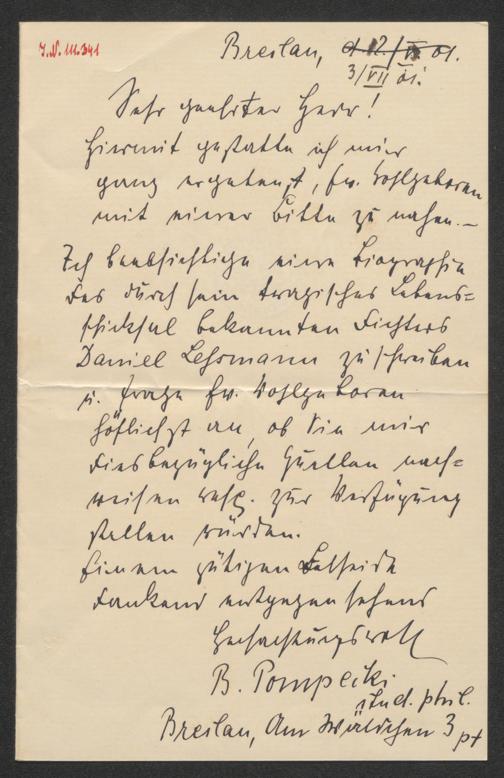 J.N. III.341
Breslau, d 12/VI 01.
3/VII 01.
Sehr geehrter Herr!
Hiermit gestatte ich mir
ganz ergebenst, Ew. Wohlgeboren
mit einer Bitte zu nahen.—
Ich beabsichtige eine Biographie
des durch sein tragisches Lebens=
schicksal bekannten Dichters
Daniel Lehrmann zu schreiben
u. frage Ew. Wohlgeboren
höflichst an, ob Sie mir
diesbezügliche Quellen nach=
weisen resp. zur Verfügung
stellen würden.
Einem gütigen Bescheide
dankend entgegensehend
Hochachtungsvoll
B. Pompecki
stud. phil.
Breslau, Am Wäldchen 3 pt